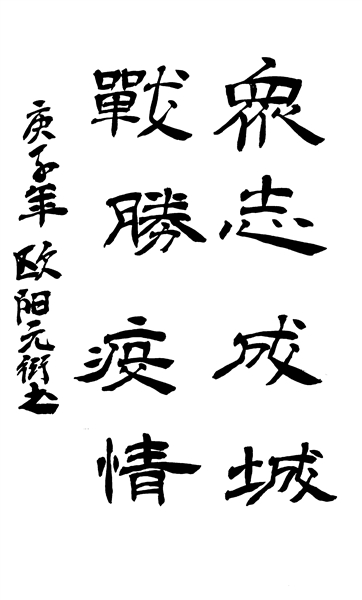 眾志成城
戰勝疫情
庚子年 欧阳元衔书